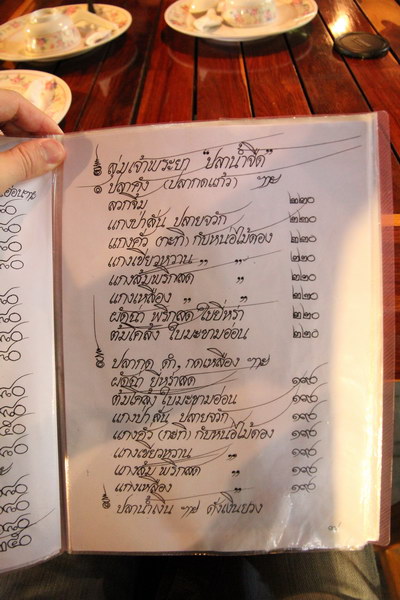 ลุ่มเจ้าพระยา "ปลาน้ำจืด"
ปลาคัง (ปลากดแก้ว)
ลวกจิ้ม ๒๒๐
แกงป่าสับ ปลายจวัก ๒๒๐
แกงคั่ว (กะทิ) กับหน่อไม้ดอง ๒๒๐
แกงเขียวหวาน " " ๒๒๐
แกงส้มพริกสด " ๒๒๐
แกงเหลือง " " ๒๒๐
ผัดฉ่า พริกสด ใบยี่หร่า ๒๒๐
ต้มโคล้ง ใบมะขามอ่อน ๒๒๐
ปลากด ดำ, กดเหลือง
ผัดฉ่า ยี่หร่าสด ๑๙๐
ต้มโคล้ง ใบมะขามอ่อน ๑๙๐
แกงป่าสับ ปลายจวัก ๑๙๐
แกงคั่ว (กะทิ) กับหน่อไม้ดอง ๑๙๐
แกงเขียวหวาน " ๑๙๐
แกงส้ม พริกสด " ๑๙๐
แกงเหลือง " ๑๙๐
ปลาน้ำเงิน ดั่งเงินยวง